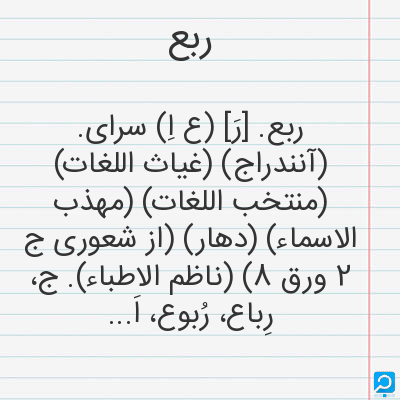 ربع
ربع. [رَ] (ع اِ) سرای.
(آنندراج) (غیاث اللغات)
(منتخب اللغات) (مهذب
الاسماء) (دهار) (از شعوری ج
۲ ورق ۸) (ناظم الاطباء). ج،
رِباع، رُبوع، اَ...